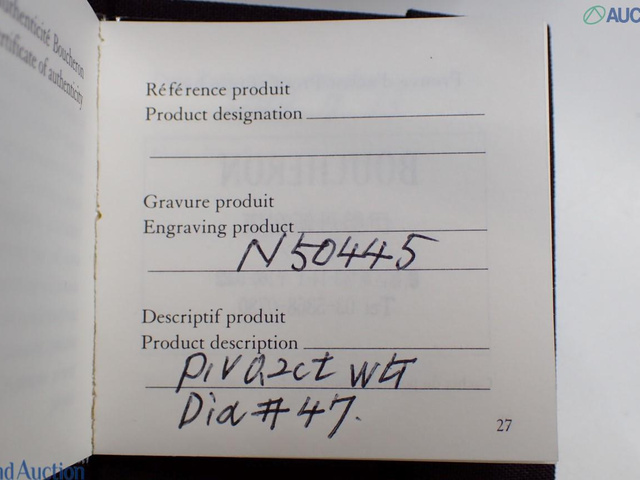 uthenticité Boucheron
rtificate of authenticity
Référence produit
Product designation
Gravure produit
Engraving product
N50445
Descriptif produit
Product description
Div 0,2ct WG
Dia #47.
27
AUC
nd Auction